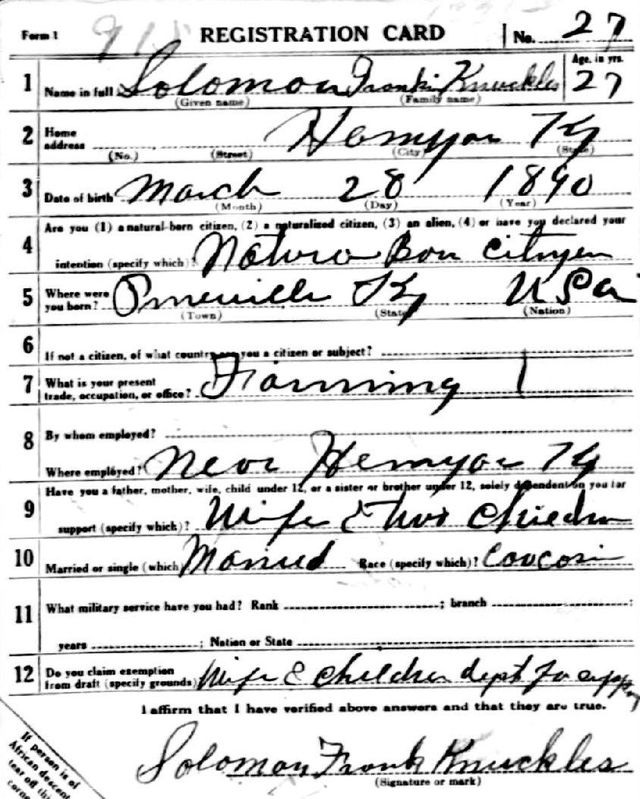 Form 1 REGISTRATION CARD No. 27
1 Name in full Solomon Frank Knuckles Age, in yrs. 27
(Given name) (Family name)
2 Home address Hemyar Ky
(No.) (Street) (City) (State)
3 Date of birth March 28 1890
(Month) (Day) (Year)
4 Are you (1) a natural-born citizen, (2) a naturalized citizen, (3) an alien, (4) or have you declared your
intention (specify which)? Natura Bon Citizen
5 Where were you born? Pineville Ky USA
(Town) (State) (Nation)
6 If not a citizen, of what country are you a citizen or subject?
7 What is your present trade, occupation, or office? Farming 1
8 By whom employed?
Where employed? Near Hemyar Ky
9 Have you a father, mother, wife, child under 12, or a sister or brother under 12, solely dependent on you for
support (specify which)? Wife & two Children
10 Married or single (which) Married Race (specify which)? Caucasi
11 What military service have you had? Rank ; branch ;
years ; Nation or State
12 Do you claim exemption from draft (specify grounds) Wife & Children dept for support
I affirm that I have verified above answers and that they are true.
Solomon Frank Knuckles
(Signature or mark)
If person is of
African descent
tear off this
corner